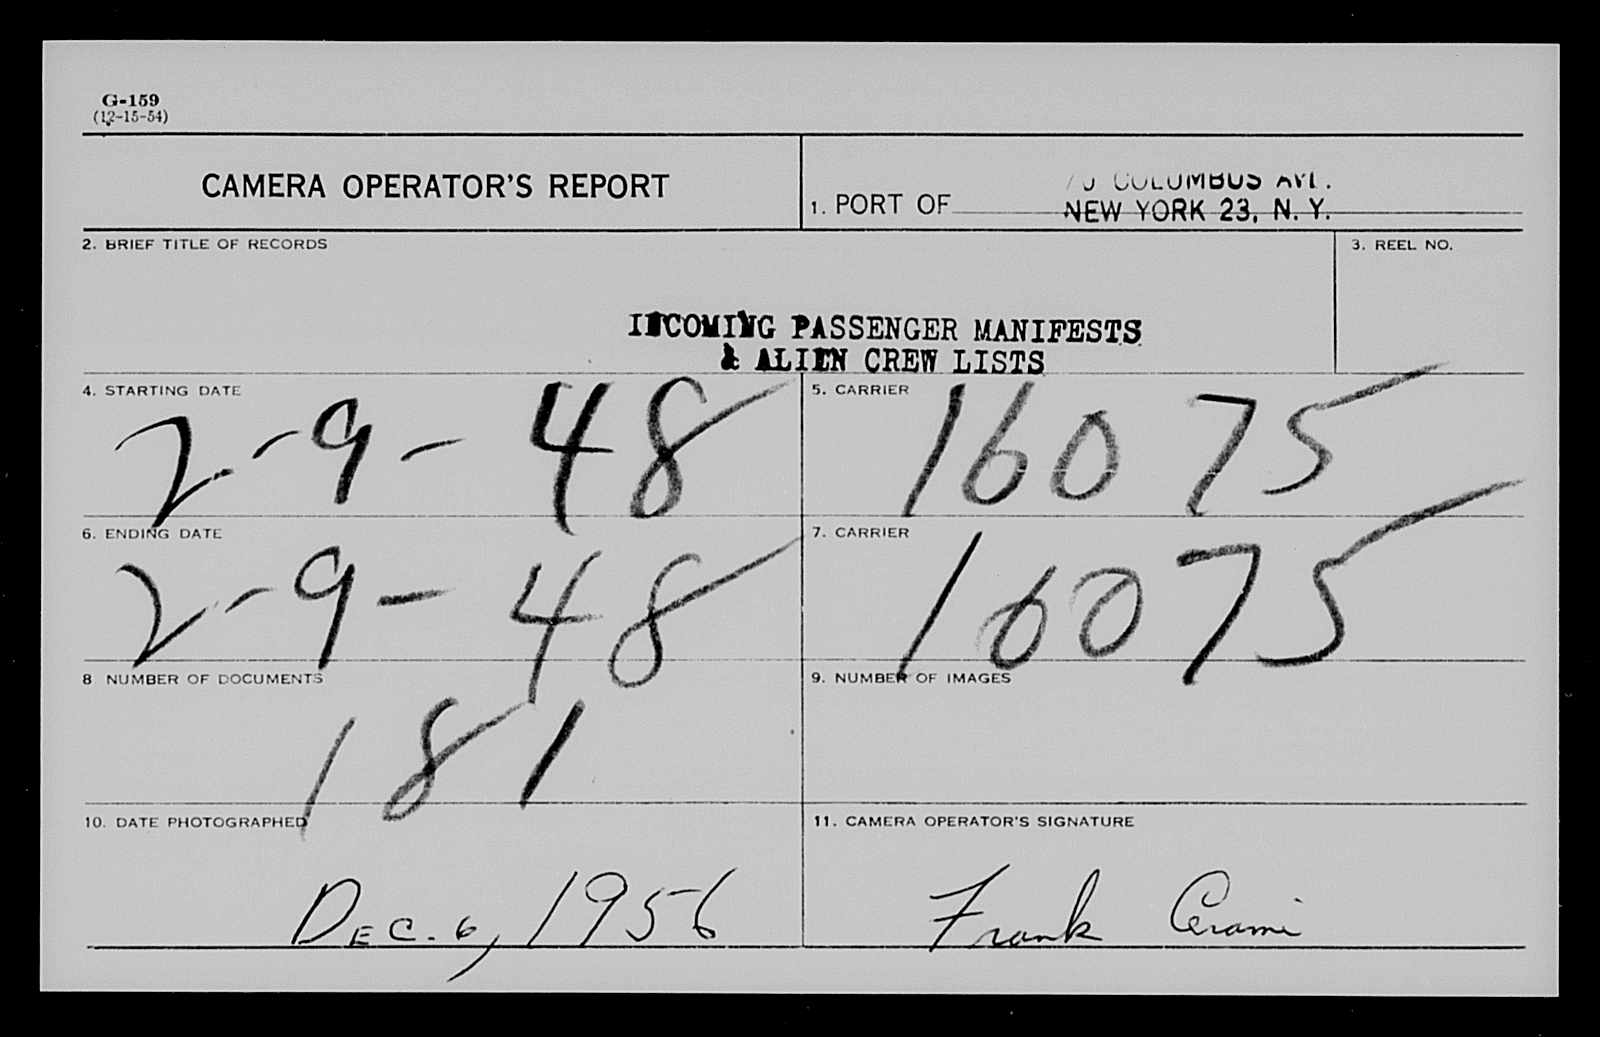 G-159
(12-15-54)
CAMERA OPERATOR'S REPORT
1. PORT OF
70 COLUMBUS AVE.
NEW YORK 23, N. Y.
2. BRIEF TITLE OF RECORDS
3. REEL NO.
INCOMING PASSENGER MANIFESTS
& ALIEN CREW LISTS
4. STARTING DATE
2-9-48
5. CARRIER
16075
6. ENDING DATE
2-9-48
7. CARRIER
16075
8 NUMBER OF DOCUMENTS
181
9. NUMBER OF IMAGES
10. DATE PHOTOGRAPHED
DEC. 6, 1956
11. CAMERA OPERATOR'S SIGNATURE
Frank Cerami